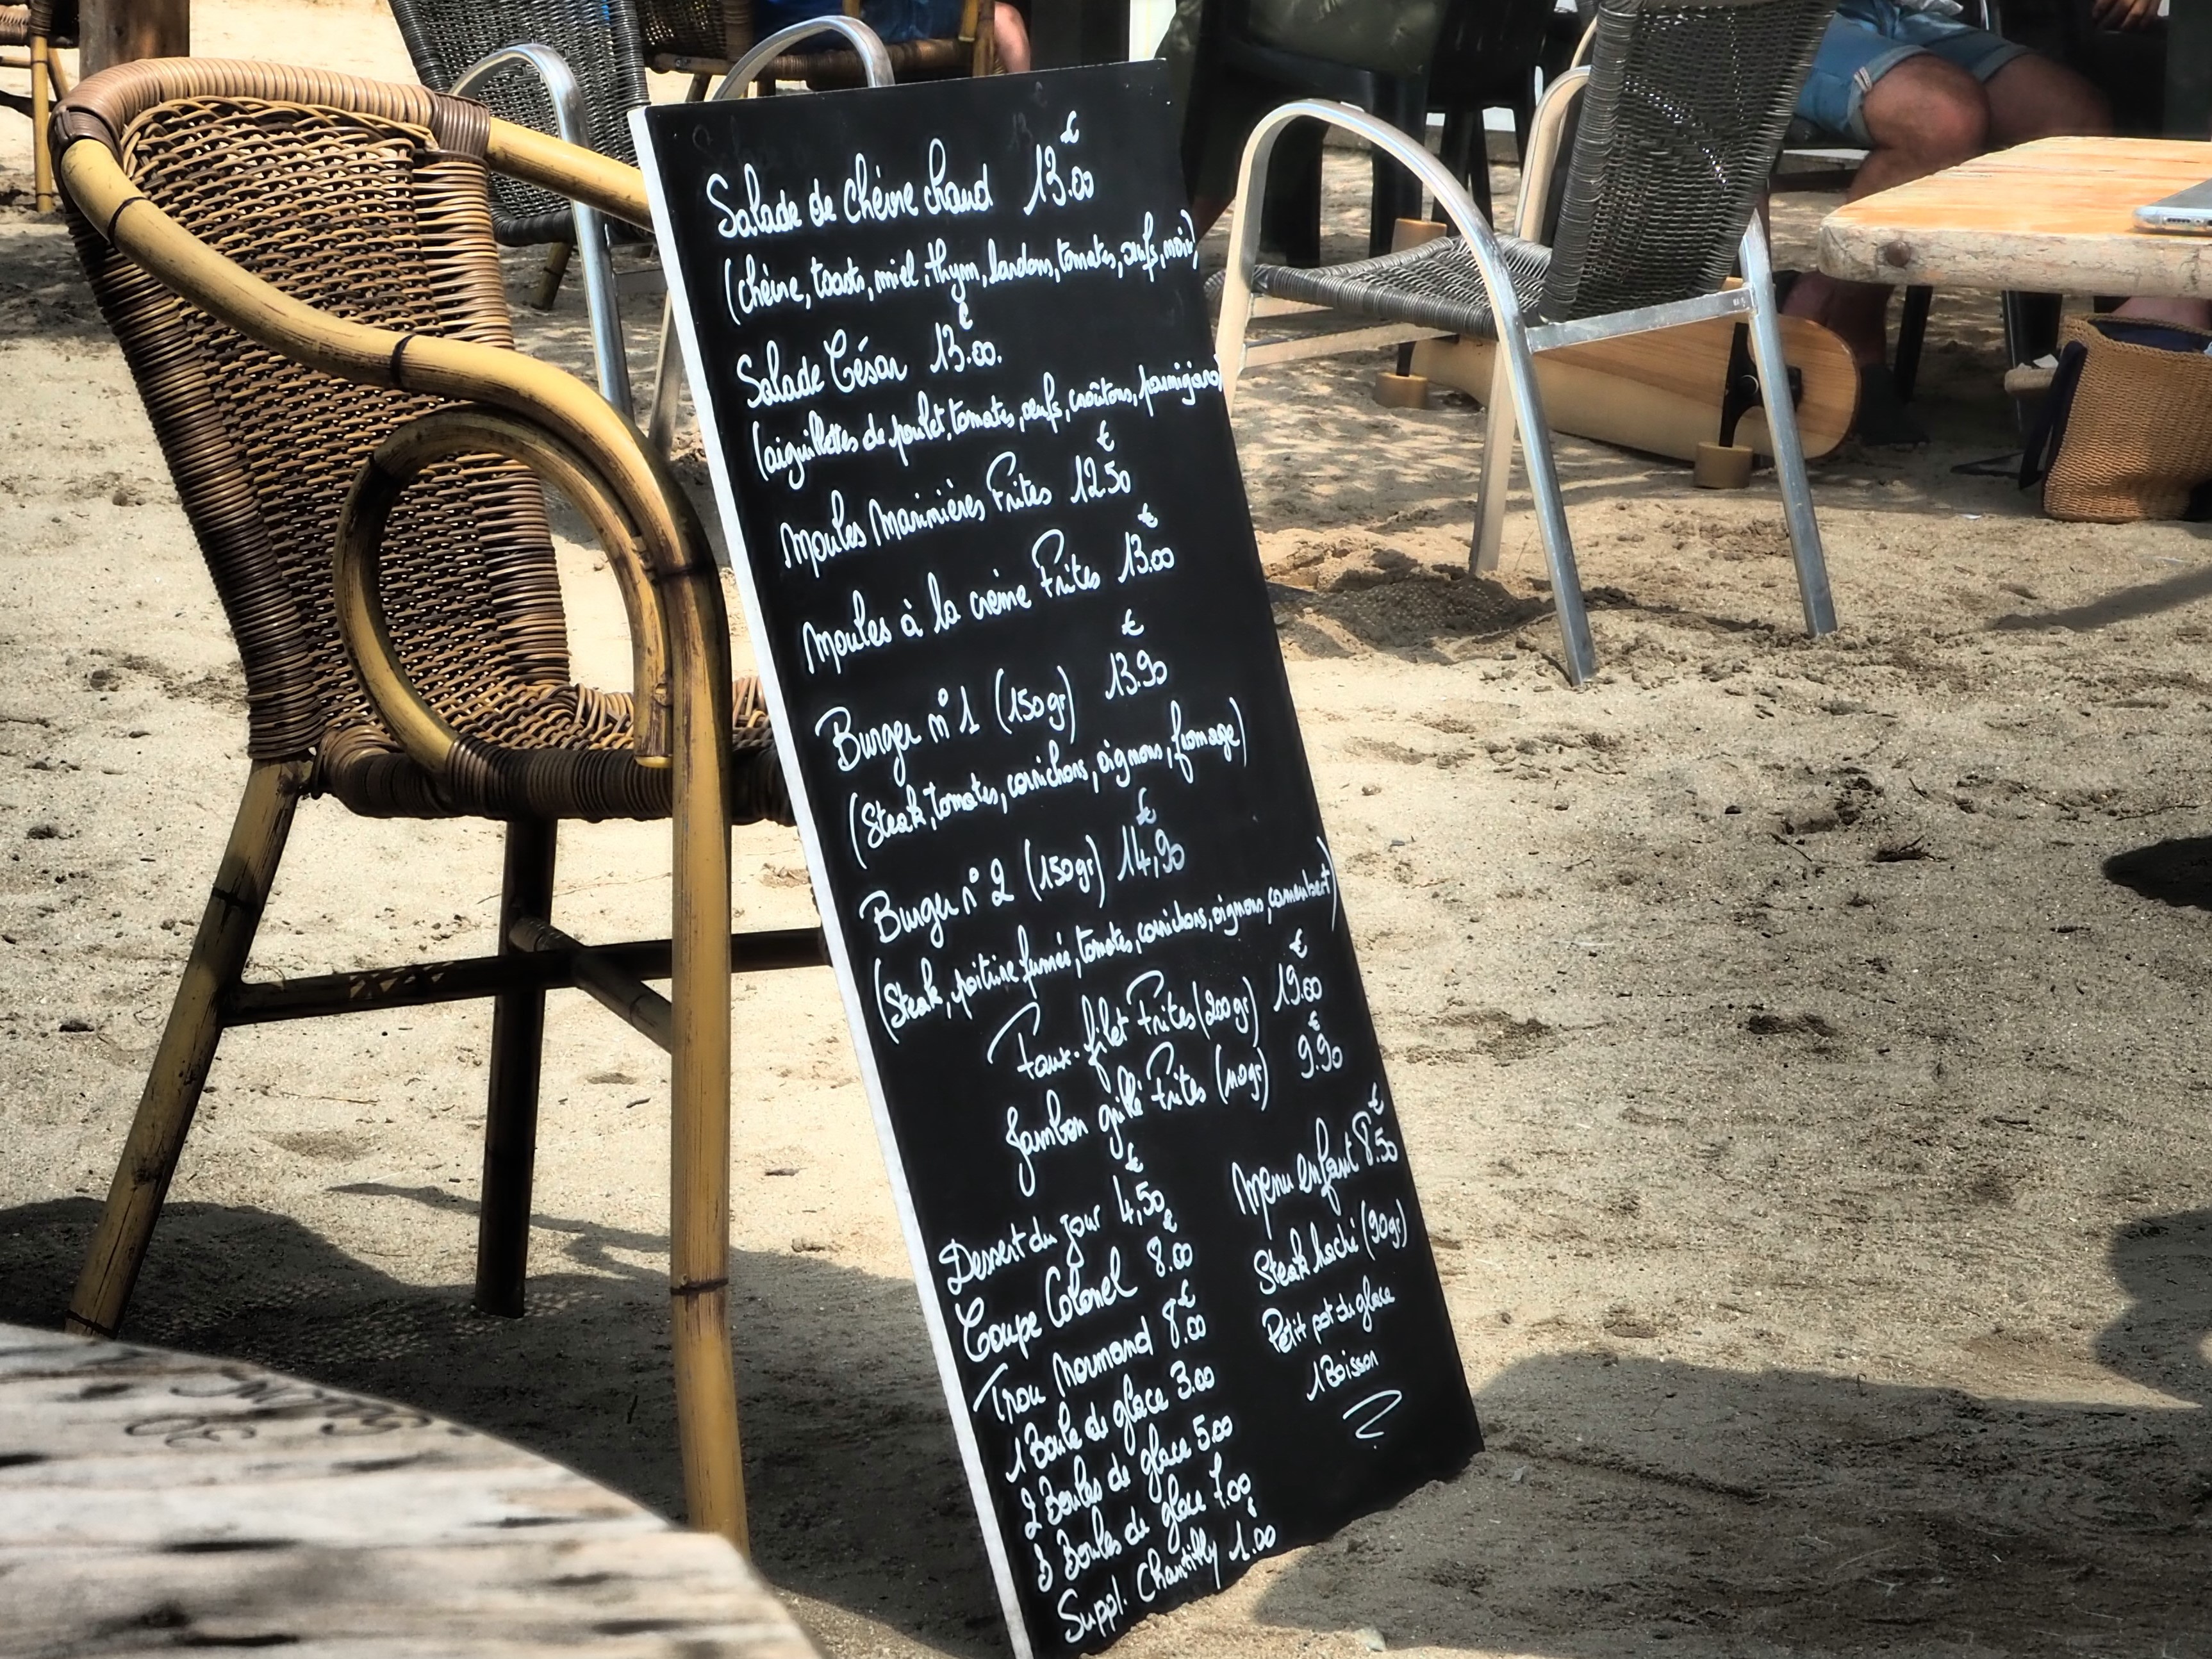 Salade de chèvre chaud 13.00 €
(chèvre, toasts, miel, thym, lardons, tomates, œufs, noix)
Salade César 13.00 €
(aiguillettes de poulet, tomates, œufs, croûtons, parmigiano)
Moules Marinières Frites 12.50 €
Moules à la crème Frites 13.00 €
Burger n°1 (150gr) 13.90 €
(Steak, tomates, cornichons, oignons, fromage)
Burger n°2 (150gr) 14,90 €
(Steak, poitrine fumée, tomates, cornichons, oignons, camembert)
Faux-filet Frites (200gr) 19.00 €
Jambon grillé Frites (110gr) 9.90 €
Dessert du jour 4,50 €
Coupe Colonel 8.00 €
Trou Normand 8.00 €
1 Boule de glace 3.00
2 Boules de glace 5.00
3 Boules de glace 7.00
Suppl. Chantilly 1.00 €
Menu enfant 8.50 €
Steak haché (90gr)
Petit pot de glace
1 Boisson